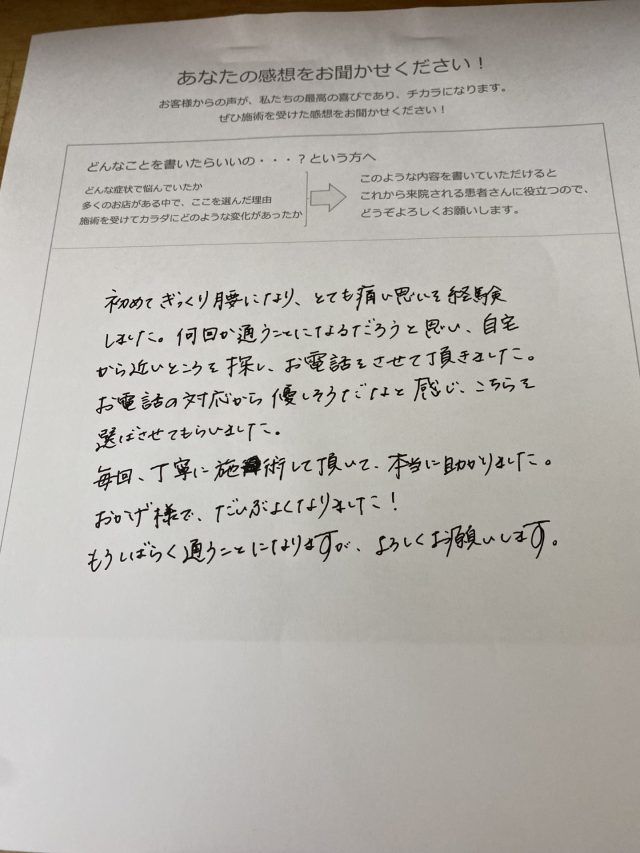 あなたの感想をお聞かせください!
お客様からの声が、私たちの最高の喜びであり、チカラになります。
ぜひ施術を受けた感想をお聞かせください!
どんなことを書いたらいいの・・・?という方へ
どんな症状で悩んでいたか
多くのお店がある中で、ここを選んだ理由
施術を受けてカラダにどのような変化があったか
このような内容を書いていただけると
これから来院される患者さんに役立つので、
どうぞよろしくお願いします。
初めてぎっくり腰になり、とても痛い思いを経験
しました。何回か通うことになるだろうと思い、自宅
から近いところを探し、お電話をさせて頂きました。
お電話の対応から優しそうだなと感じ、こちらを
選ばさせてもらいました。
毎回、丁寧に施術して頂いて、本当に助かりました。
おかげ様で、だいぶよくなりました!
もうしばらく通うことになりますが、よろしくお願いします。